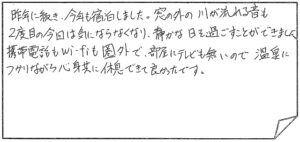 昨年に続き、今年も宿泊しました。窓の外の川が流れる音も
2度目の今回は気にならなくなり、静かな日を過ごすことができました
携帯電話もwi-fiも圏外で、部屋にテレビも無いので温泉に
つかりながら心身共に休息できて良かったです。